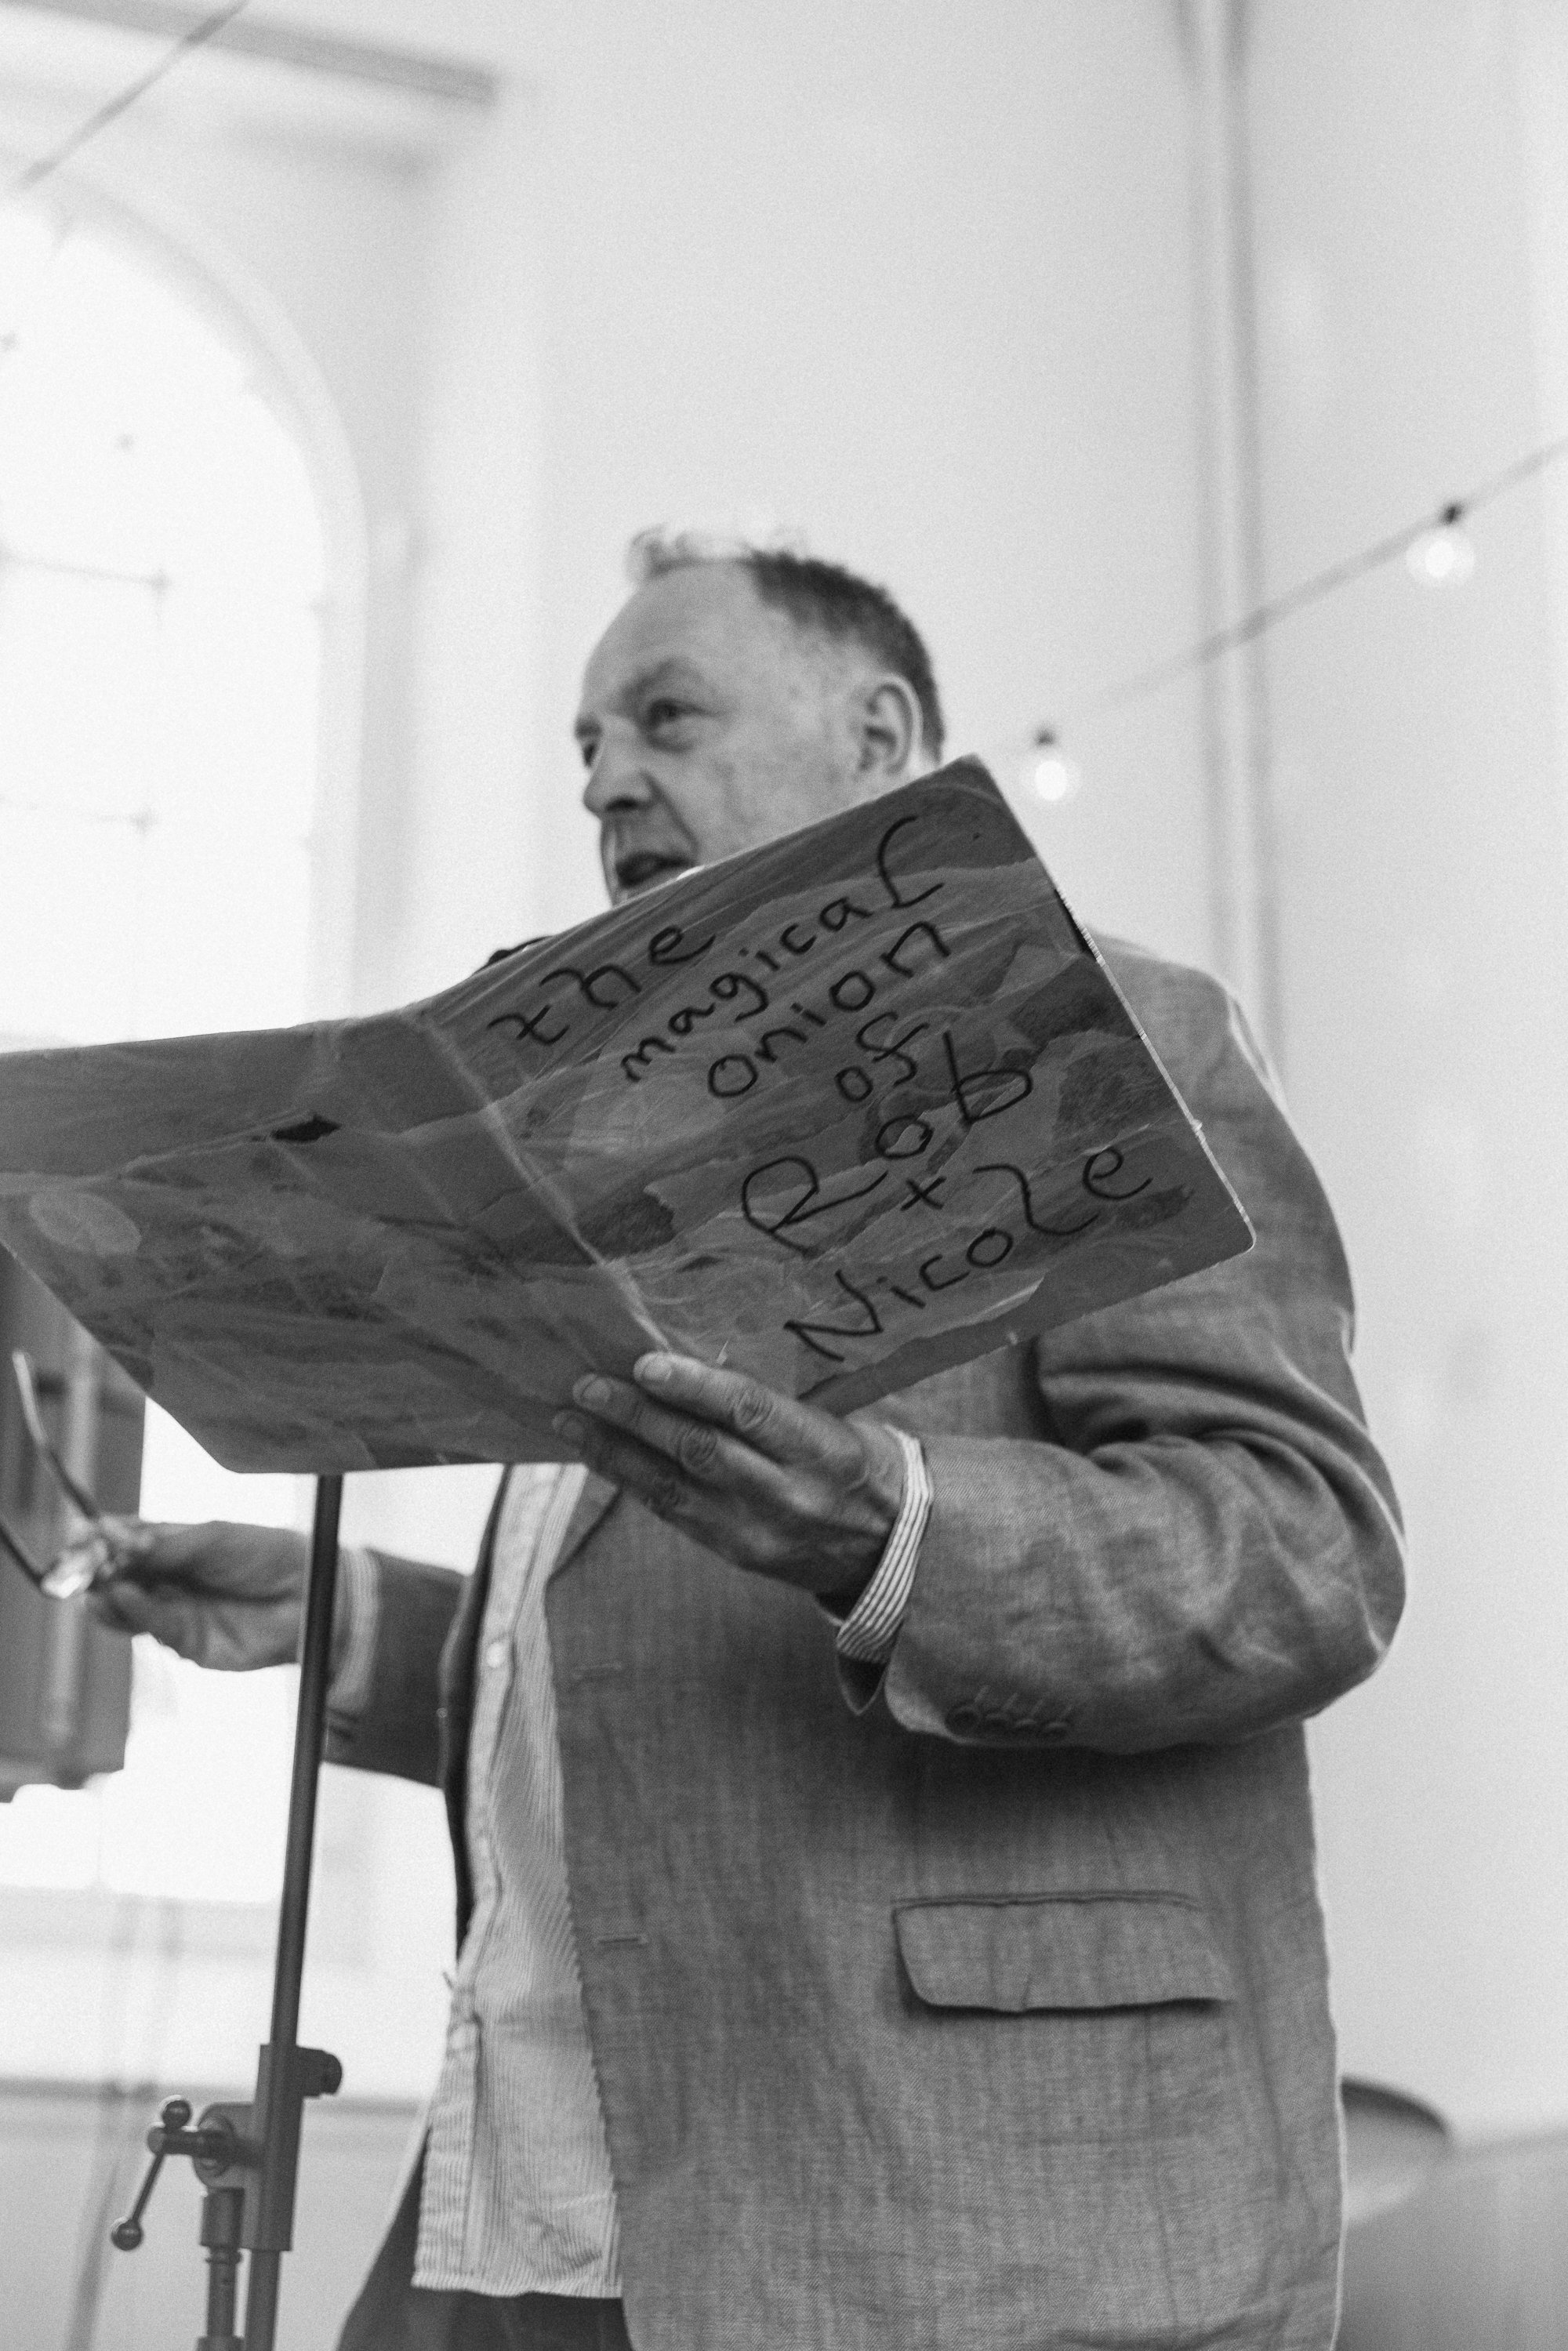 the
magical
onion
of
Rob
+
Nicole